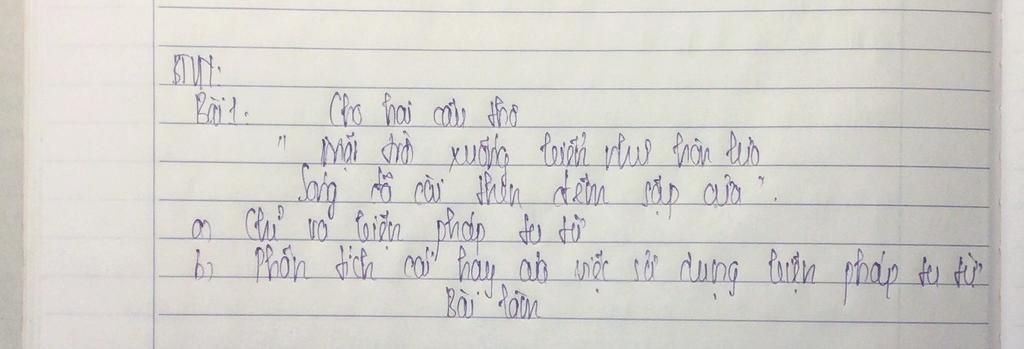 BTVN:
Bài 1. Cho hai câu thơ
" Mặt trời xuống biển như hòn lửa
Sóng đã cài then đêm sập cửa ".
a) Chỉ ra biện pháp tu từ
b) Phân tích cái hay của việc sử dụng biện pháp tu từ
Bài làm